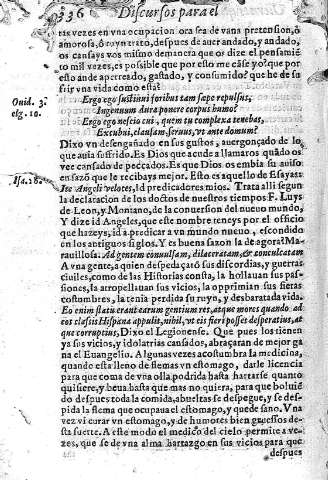 336 Discursos para el
tas vezes en vna ocupacion ora sea de vana pretension, ò
amorosa, ò ruyn trato, despues de auer andado, y andado,
os cansays vos mismo demanera que os dize el pensamiẽ
to mil vezes, es possible que por esto me cãse yo? que por
esto ande aperreado, gastado, y consumido? que he de su
frir vna vida como esta?
Ergo ego sustinui foribus tam sæpe repulsus,
Ouid. 3. Ingenuum dura ponere corpus humo?
elg. 10. Ergo ego nescio cui, quem tu complexa tenebas,
Excubui, clausam, seruus, vt ante domum?
Dixo vn desengañado en sus gustos, auergonçado de lo
que auia sufrido. Es que Dios acude a llamaros quãdo os
vee cansado de peccados. Es que Dios os embia su auiso
en sazõ que le recibays mejor. Esto es aquello de Esayas:
Isa. 18. Ite Angeli veloces, Id predicadores mios. Trata alli segun
la declaracion de los doctos de nuestros tiempos F. Luys
de Leon, y Montano, de la conuersion del nueuo mundo,
Y dize id Angeles, que este nombre teneys por el officio
que hazeys, id a predicar a vn mundo nueuo, escondido
en los antiguos siglos. Y es buena sazon la de agora? Ma-
rauillosa. Ad gentem conuulsam, dilaceratam, & conculcatam
A vna gente, a quien despedaçatò sus discordias, y guerras
ciuiles, como de las Historias consta, la hollauan sus pas
siones, la atropellauan sus vicios, la opprimian sus fieras
costumbres, la tenia perdida su ruyn, y desbaratada vida.
Eo enim statu erant earum gentium res, atque mores quando ad
eos classis Hispana appulit, nihil, vt eis fieri posses desperatius, at
que corruptius, Dixo el Legionense. Que pues los tienen
ya sus vicios, y idolatrias cansados, abraçaran de mejor ga
na el Euangelio. Algunas vezes acostumbra la medicina,
quando esta lleno de flemas vn estomago, darle licencia
para que coma de vna olla podrida hasta hartarse quanto
quisiere, y beua hasta que mas no quiera, para que boluiẽ
do despues toda la comida, abueltas se despegue, y se des-
pida la flema que ocupaua el estomago, y quede sano. Vna
vez vi curar vn estomago, y de humores bien gruessos de-
sta suerte. A este modo el medico del cielo permite a ve-
zes, que se de vna alma hartazgo en sus vicios para que
despues